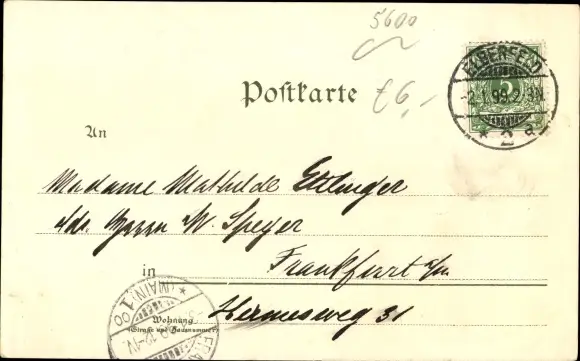 5600
Postkarte
€6,-
ELBERFELD
2.1.99.2-3N
* 2 a
5
An
Madame Mathilde Ettlinger
Adr. Herrn W. Speyer
in Frankfurt a/m.
Hermesweg 31
Wohnung
(Straße und Hausnummer)
* (MAIN) 1